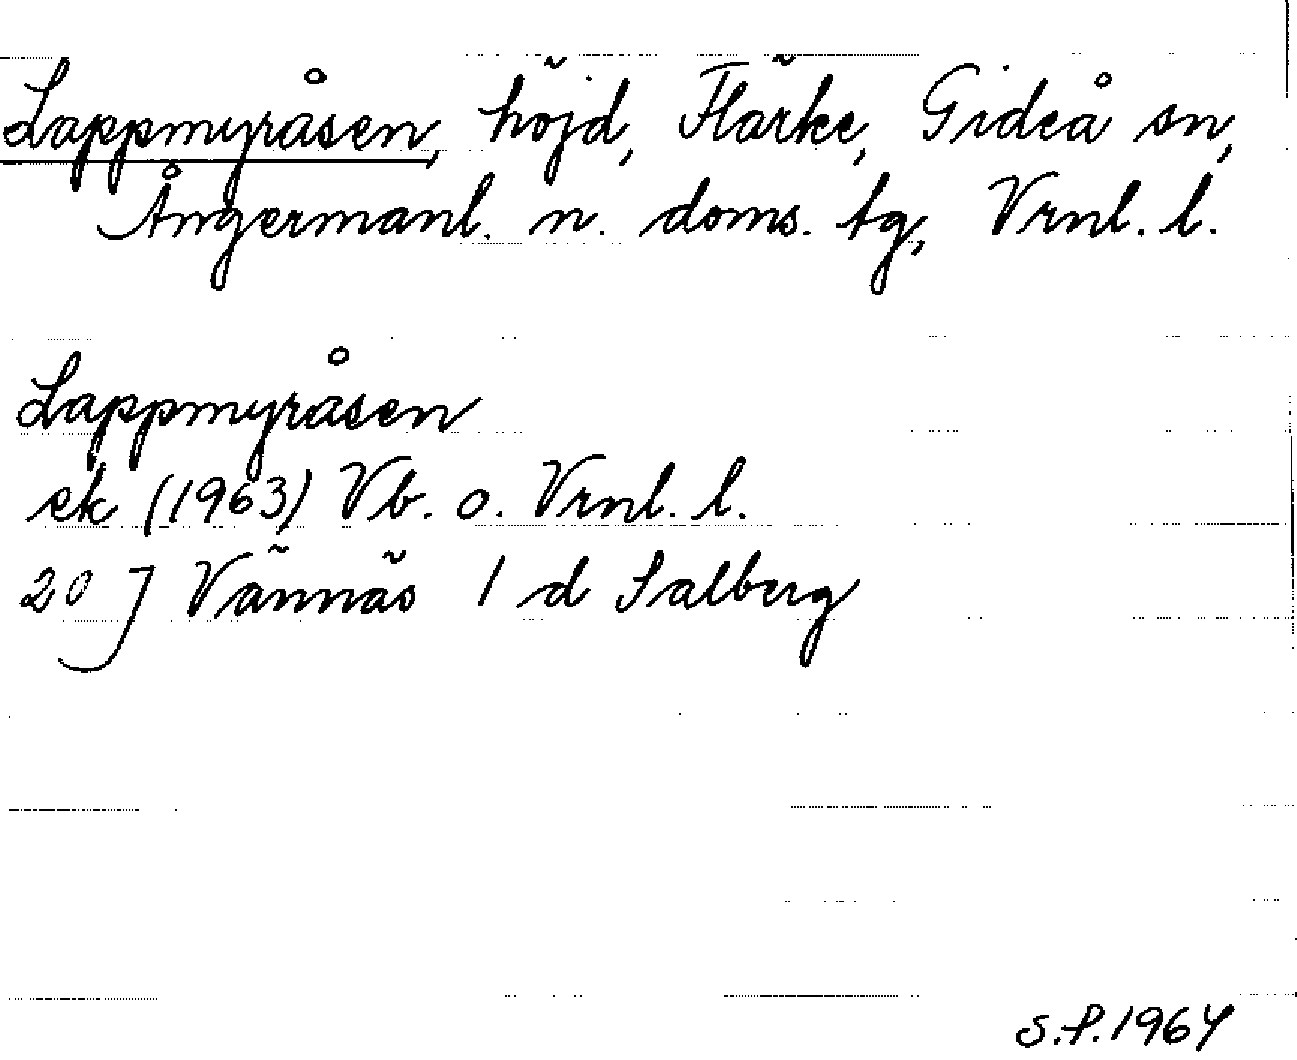 Lappmyråsen, höjd, Flärke, Gideå sn,
Ångermanl. n. doms. tg, Vrnl. l.
Lappmyråsen
ek (1963) Vb. o. Vrnl. l.
20 J Vännäs 1 d Salberg
S.P. 1964